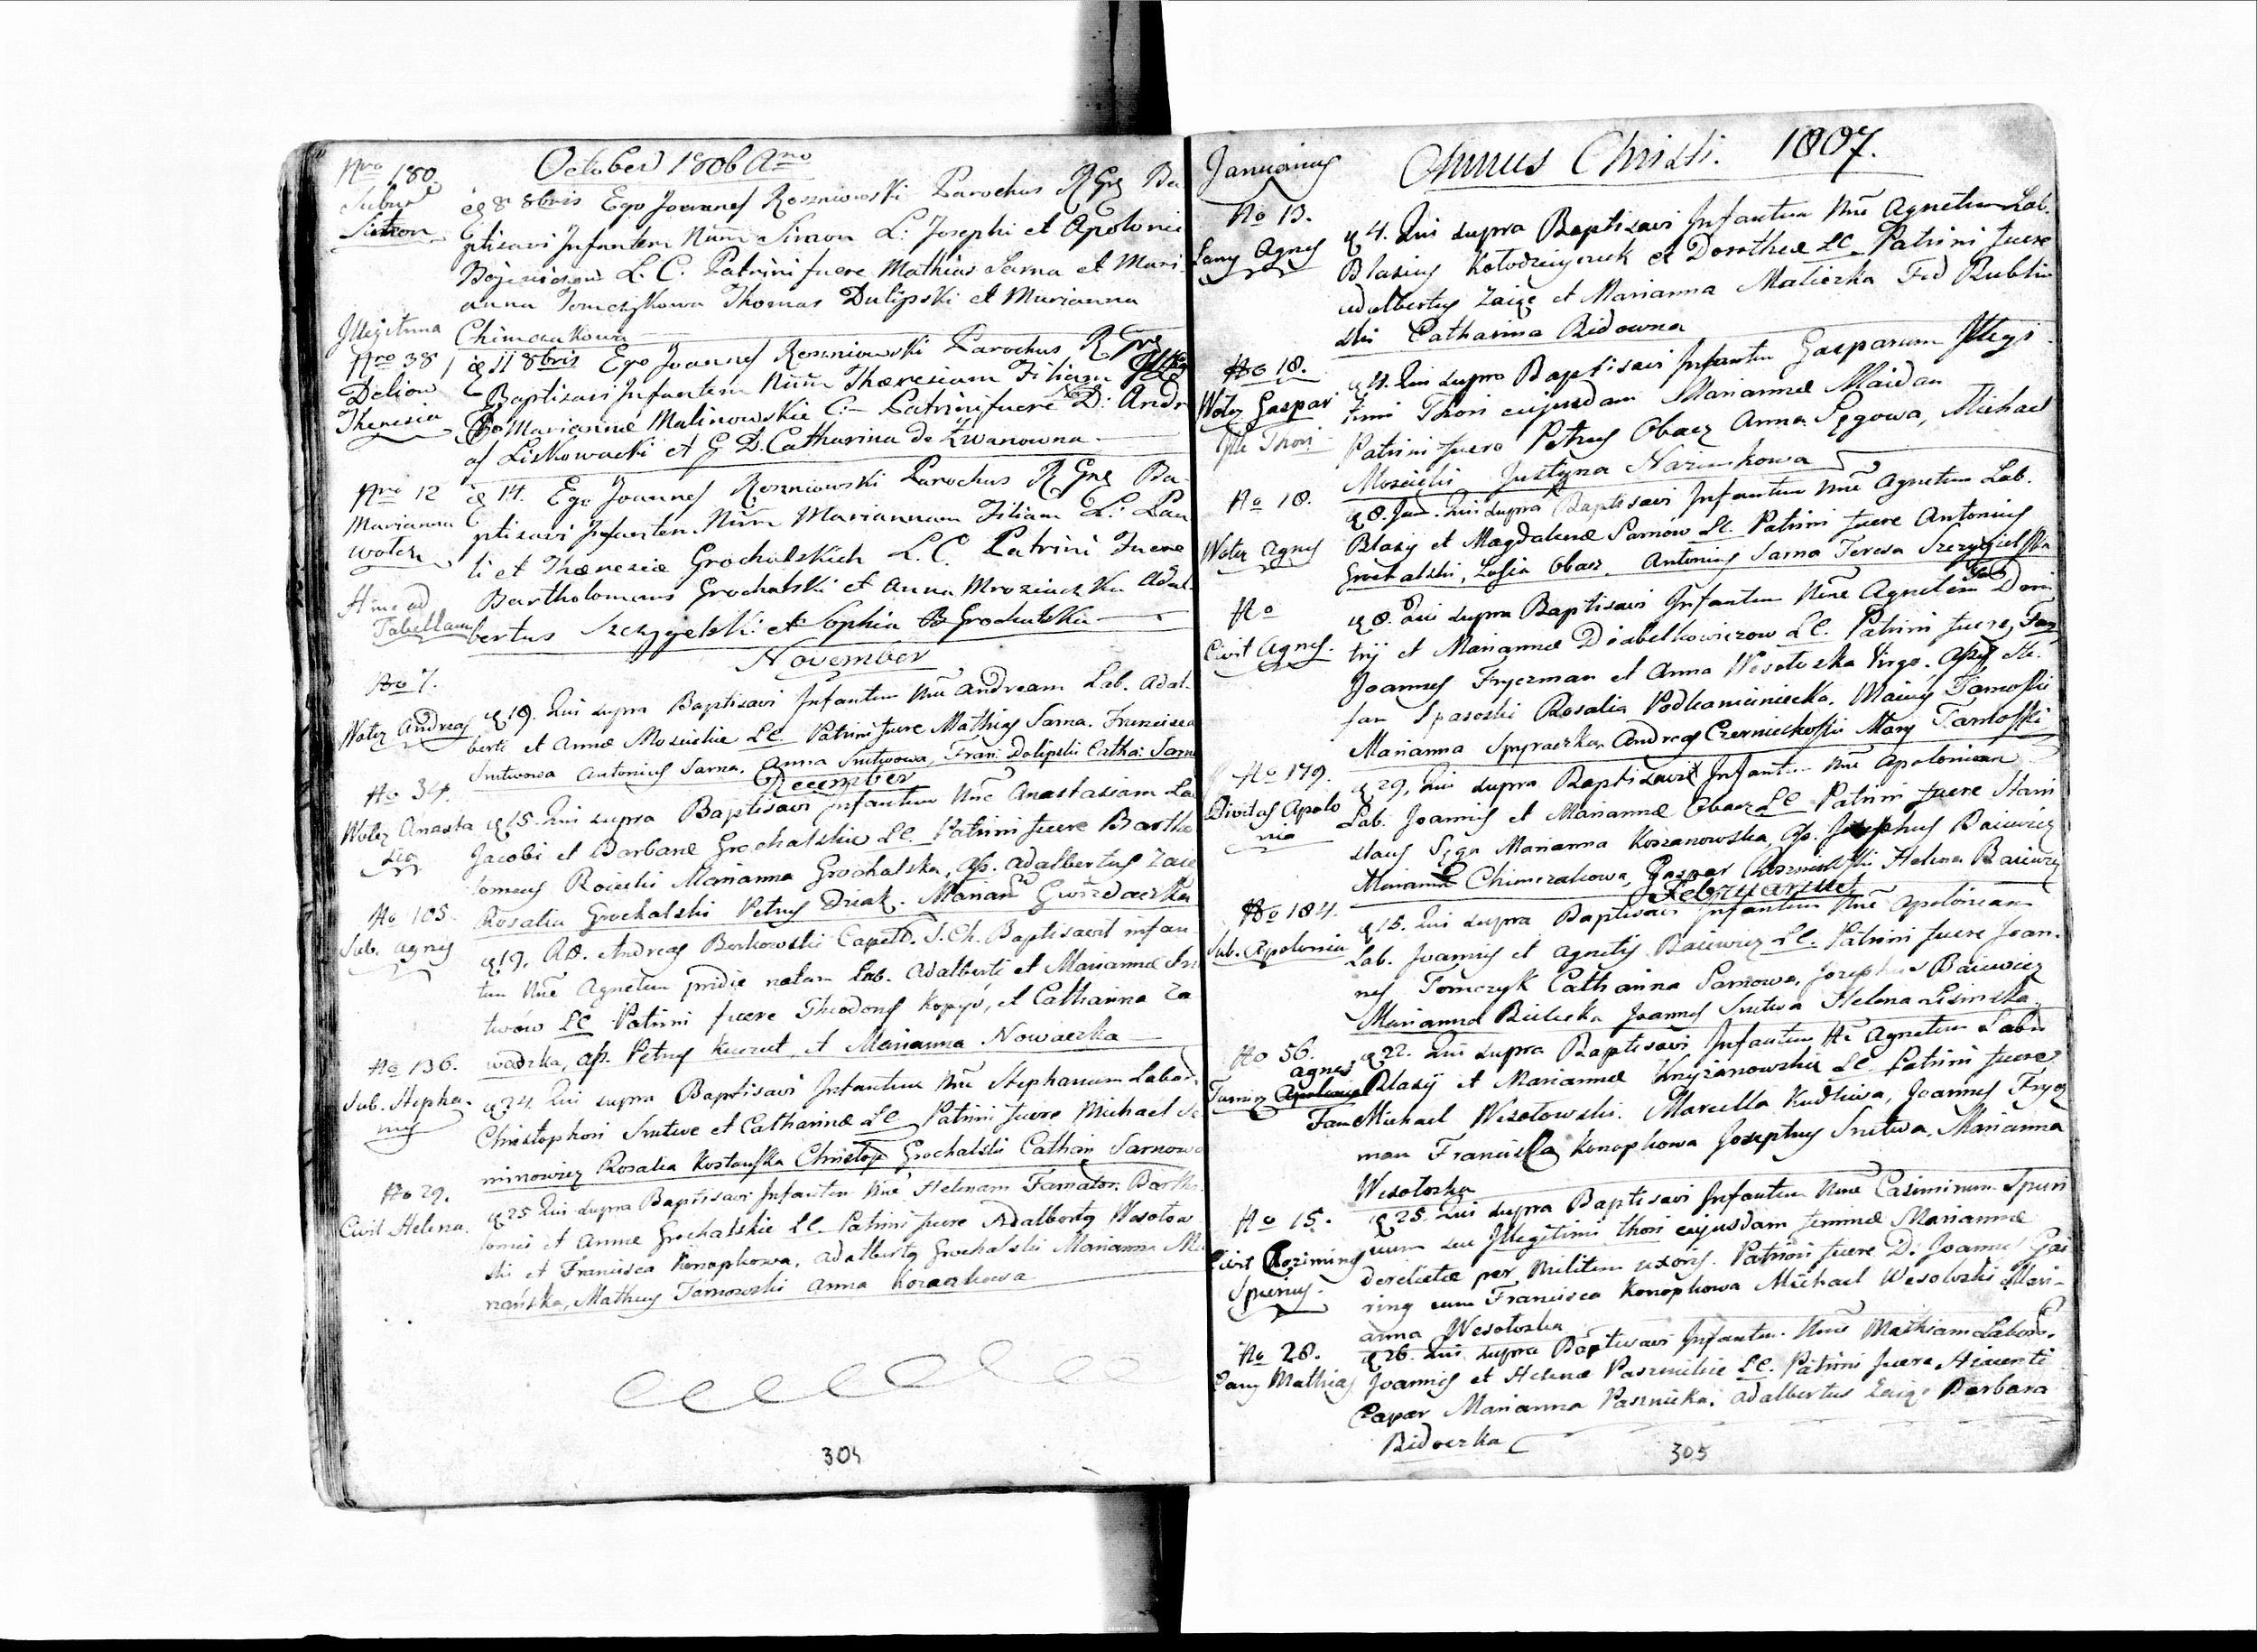 Nro 180.
Subur
Simon
October 1806 Ano
8 8bris Ego Joannes Roszniowski Parochus R Gre Ba
ptisavi Infantem Num Simon L: Josephi et Apolonie
L. C. Patrini fuere Mathias Sarna et Mari
anna Tomczykowa Thomas Dulipski et Marianna
Chimczakowa
Illegitima
Nro 38
Theresia
11 8bris Ego Joannes Roszniowski Parochus R Gre
Baptisavi Infantem Num Theresiam Filiam
Mariannae Malinowskie C Patrini fuere D: Andre
as Liskowacki et G D. Catharina de
Nro 12
Marianna
Wolez
Hinc ad
Tabellam
14. Ego Joannes Roszniowski Parochus R Gre Ba
ptisavi Infantem Num Mariannam Filiam L: Pau
li et Theresiae Grochalskich L. C. Patrini Fuere
Bartholomeus Grochalski et Anna Mroziaczka Adal
bertus Szczygelski et Sophia Grochalska
November
No 7.
Wolez Andreas
19. Qui supra Baptisavi Infantem Nne Andream Lab. Adal-
berti et Annae Moscickie LC. Patrini fuere Mathias Sarna. Francisca
Srutwowa Antonius Sarna. Anna Srutwowa, Fran: Dolipski Catha: Sarn
December
No 34.
Wolez Anasta
sia
15. Qui supra Baptisavi Infantem Nne Anastasiam La
Jacobi et Barbarae Grochalskie LC. Patrini fuere Bartho
lomeus Roicicki Marianna Grochalska, as. Adalbertus Zaic
Rosalia Grochalski Petrus Dziak. Marian Gwizdaczka
No 105.
Sub. Agnes
19. AR. Andreas Borkowski Capell. Baptisavit infan
tem Nne Agnetem pridie natam Lab. Adalberti et Mariannae Sru
twow LC Patrini fuere Theodorus Kopyć, et Catharina Za
wadzka, as. Petrus et Marianna Nowaczka
No 136.
Sub. Stepha
nus
24. Qui supra Baptisavi Infantem Nne Stephanum Labor.
Christophori Srutwe et Catharinae LC Patrini fuere Michael Se
minowicz Rosalia Christop Grochalski Cathari Sarnowa
No 29.
Civit Helena.
25 Qui supra Baptisavi Infantem Nne Helenam Famator. Bartho
lomei et Annae Grochalskie LC Patrini fuere Adalbertus Wesolow
ski et Francisca Konopkowa, Adalbertus Grochalski Marianna
Matheus Tarnowski Anna Kozaczkowa
304
Januarius
Annus Christi. 1807.
No 13.
Lany Agnes
4. Qui supra Baptisavi Infantem Nne Agnetem Lab.
Blasius Kolodzieyczuk et Dorotheae LC Patrini fuere
Adalbertus Zaiąc et Marianna Maliczka Fed Rublin
ski Catharina Bidowna
No 18.
Wolez Gaspar
Ille Thori
4. Qui supra Baptisavi Infantem Gasparum Illegi
timi Thori cujusdam Mariannae Maidan
Patrini fuere Petrus Obacz Anna Sęgowa, Michael
Moscicki Justyna Nazimkowa
No 18.
Wolez Agnes
8. Jan. Qui supra Baptisavi Infantem Nne Agnetem Lab.
Blasij et Magdalenae Sarnow LC. Patrini fuere Antonius
Grochalski, Zofia Obacz. Antonius Sarna Teresa Szczygielska
No
Civit Agnes.
8. Qui supra Baptisavi Infantem Nne Agnetem Dem
trij et Mariannae Diabelkowiczow LC. Patrini fuere, Fam
Joannes Fryczman et Anna Wesolozka Virgo. Ass Ste.
fan Spasoski Rosalia Podkaminiecka. Tarnoski
Marianna Spyraczka, Andreas Czernieckoski Mary Tarnoski
No 179.
Civitas Apolo
nia
29, Qui supra Baptisavit Infantem Nne Apoloniam
Lab. Joannis et Mariannae Obacz LC Patrini fuere Stani
slaus Sęga Marianna Koszanowska, as. Josephus Baiewicz
Marianna Chimczakowa, Gaspar Helena Baiewicz
Februarius
No 184.
Sub. Apolonia
15. Qui supra Baptisavi Infantem Nne Apoloniam
Lab. Joannis et Agnetis Baiewicz LC. Patrini fuere Joan-
nes Tomczyk Catharina Sarnowa, Josephus Baiewicz
Marianna Bielecka Joannes Srutwa Helena Lisinska.
No 56.
Agnes
Apolonia
Fam
22. Qui supra Baptisavi Infantem Ne Agnetem Labor
Blasij et Mariannae Krzyzanowskie LC Patrini fuere
Michael Wesolowski. Marcella Kudliwa, Joannes Frycz
man Francisca Konopkowa Josephus Srutwa, Marianna
Wesolozka
No 15.
Civit Cazimirus
Spurius.
25. Qui supra Baptisavi Infantem Nne Casimirum Spuri
uum seu Illegitimi thori cujusdam feminae Mariannae
derelictae per Militem uxoris. Patrini fuere D. Joannes
cum Francisca Konopkowa Michael Wesolozki Mari-
anna Wesolozka
No 28.
Lany Mathias
26. Qui supra Baptisavi Infantem Nne Mathiam Labor.
Joannis et Helenae Pasznickie LC. Patrini fuere
Capar Marianna Pasznicka. Adalbertus Zaiąc Barbara
Bidoczka
305